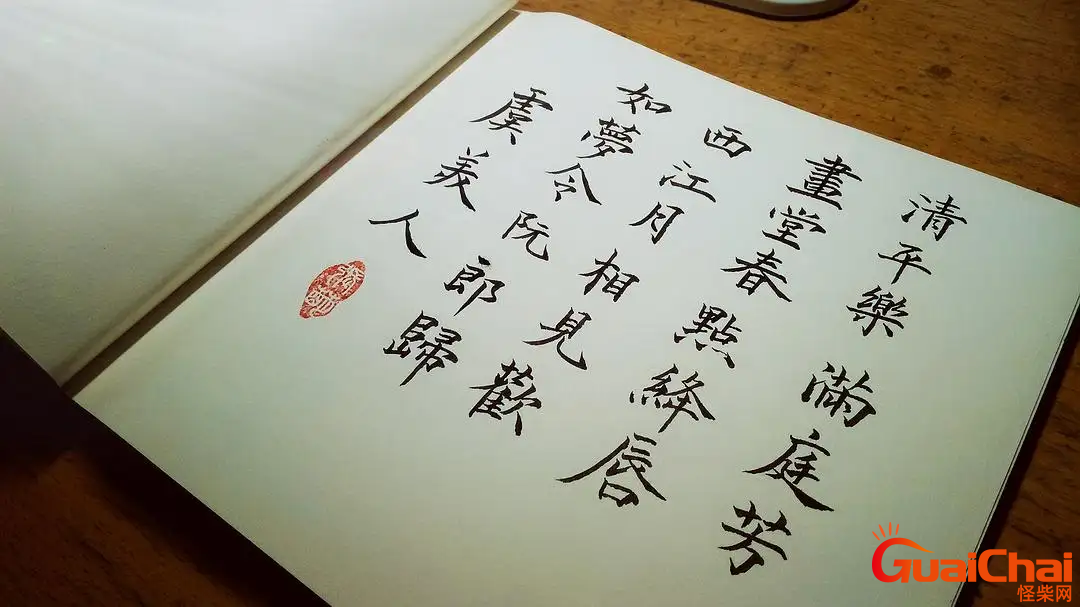 清平樂 滿庭芳
畫堂春 點絳唇
西江月 相見歡
如夢令 阮郎歸
虞美人
GuaiChai
怪柴网